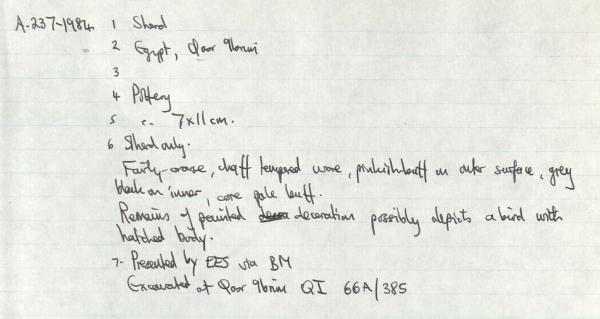 A-237-1984 1 Sherd
2 Egypt, Qasr Ibrim
3
4 Pottery
5 c. 7x11cm.
6 Sherd only.
Fairly coarse, chaff tempered ware, pinkish buff on outer surface, grey
black on inner, core pale buff.
Remains of painted decoration possibly depicts a bird with
hatched body.
7- Presented by EES via BM
Excavated at Qasr Ibrim QI 66A/385